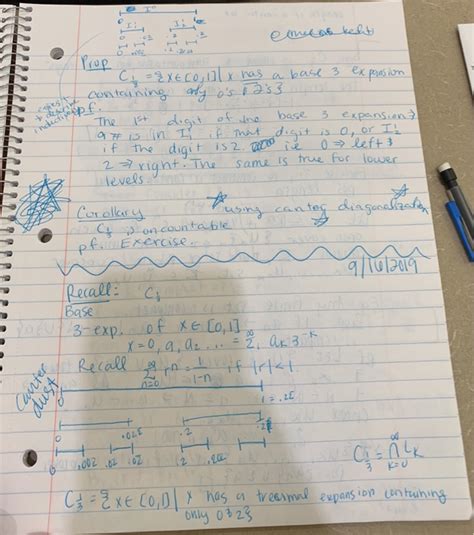 I⁰
0
I₁ I₂
0 .2
Prop
C_{1/3} = {x ∈ [0,1] | x has a base 3 expansion
containing only 0's & 2's}
pf.
The 1st digit of the base 3 expansion
is in I₁ if that digit is 0, or I₂
if the digit is 2. i.e 0 ⇒ left &
2 ⇒ right. The same is true for lower
levels.
Corollary using cantor diagonalization
C_{1/3} is uncountable
pf. Exercise.
9/16/2019
Recall: C_{1/3}
Base
3-exp. of x ∈ [0,1]
x = 0.a₁a₂... = Σ aₖ3^{-k}
Recall Σ_{n=0}^∞ rⁿ = 1/(1-r), if |r|<1.
Cantor
dust
0 1 = .2
0 .02 .2
0 .002 .02 .2
C_{1/3} = ∩_{k=0}^∞ Lₖ
C_{1/3} = {x ∈ [0,1] | x has a treesmal expansion containing
only 0 & 2}